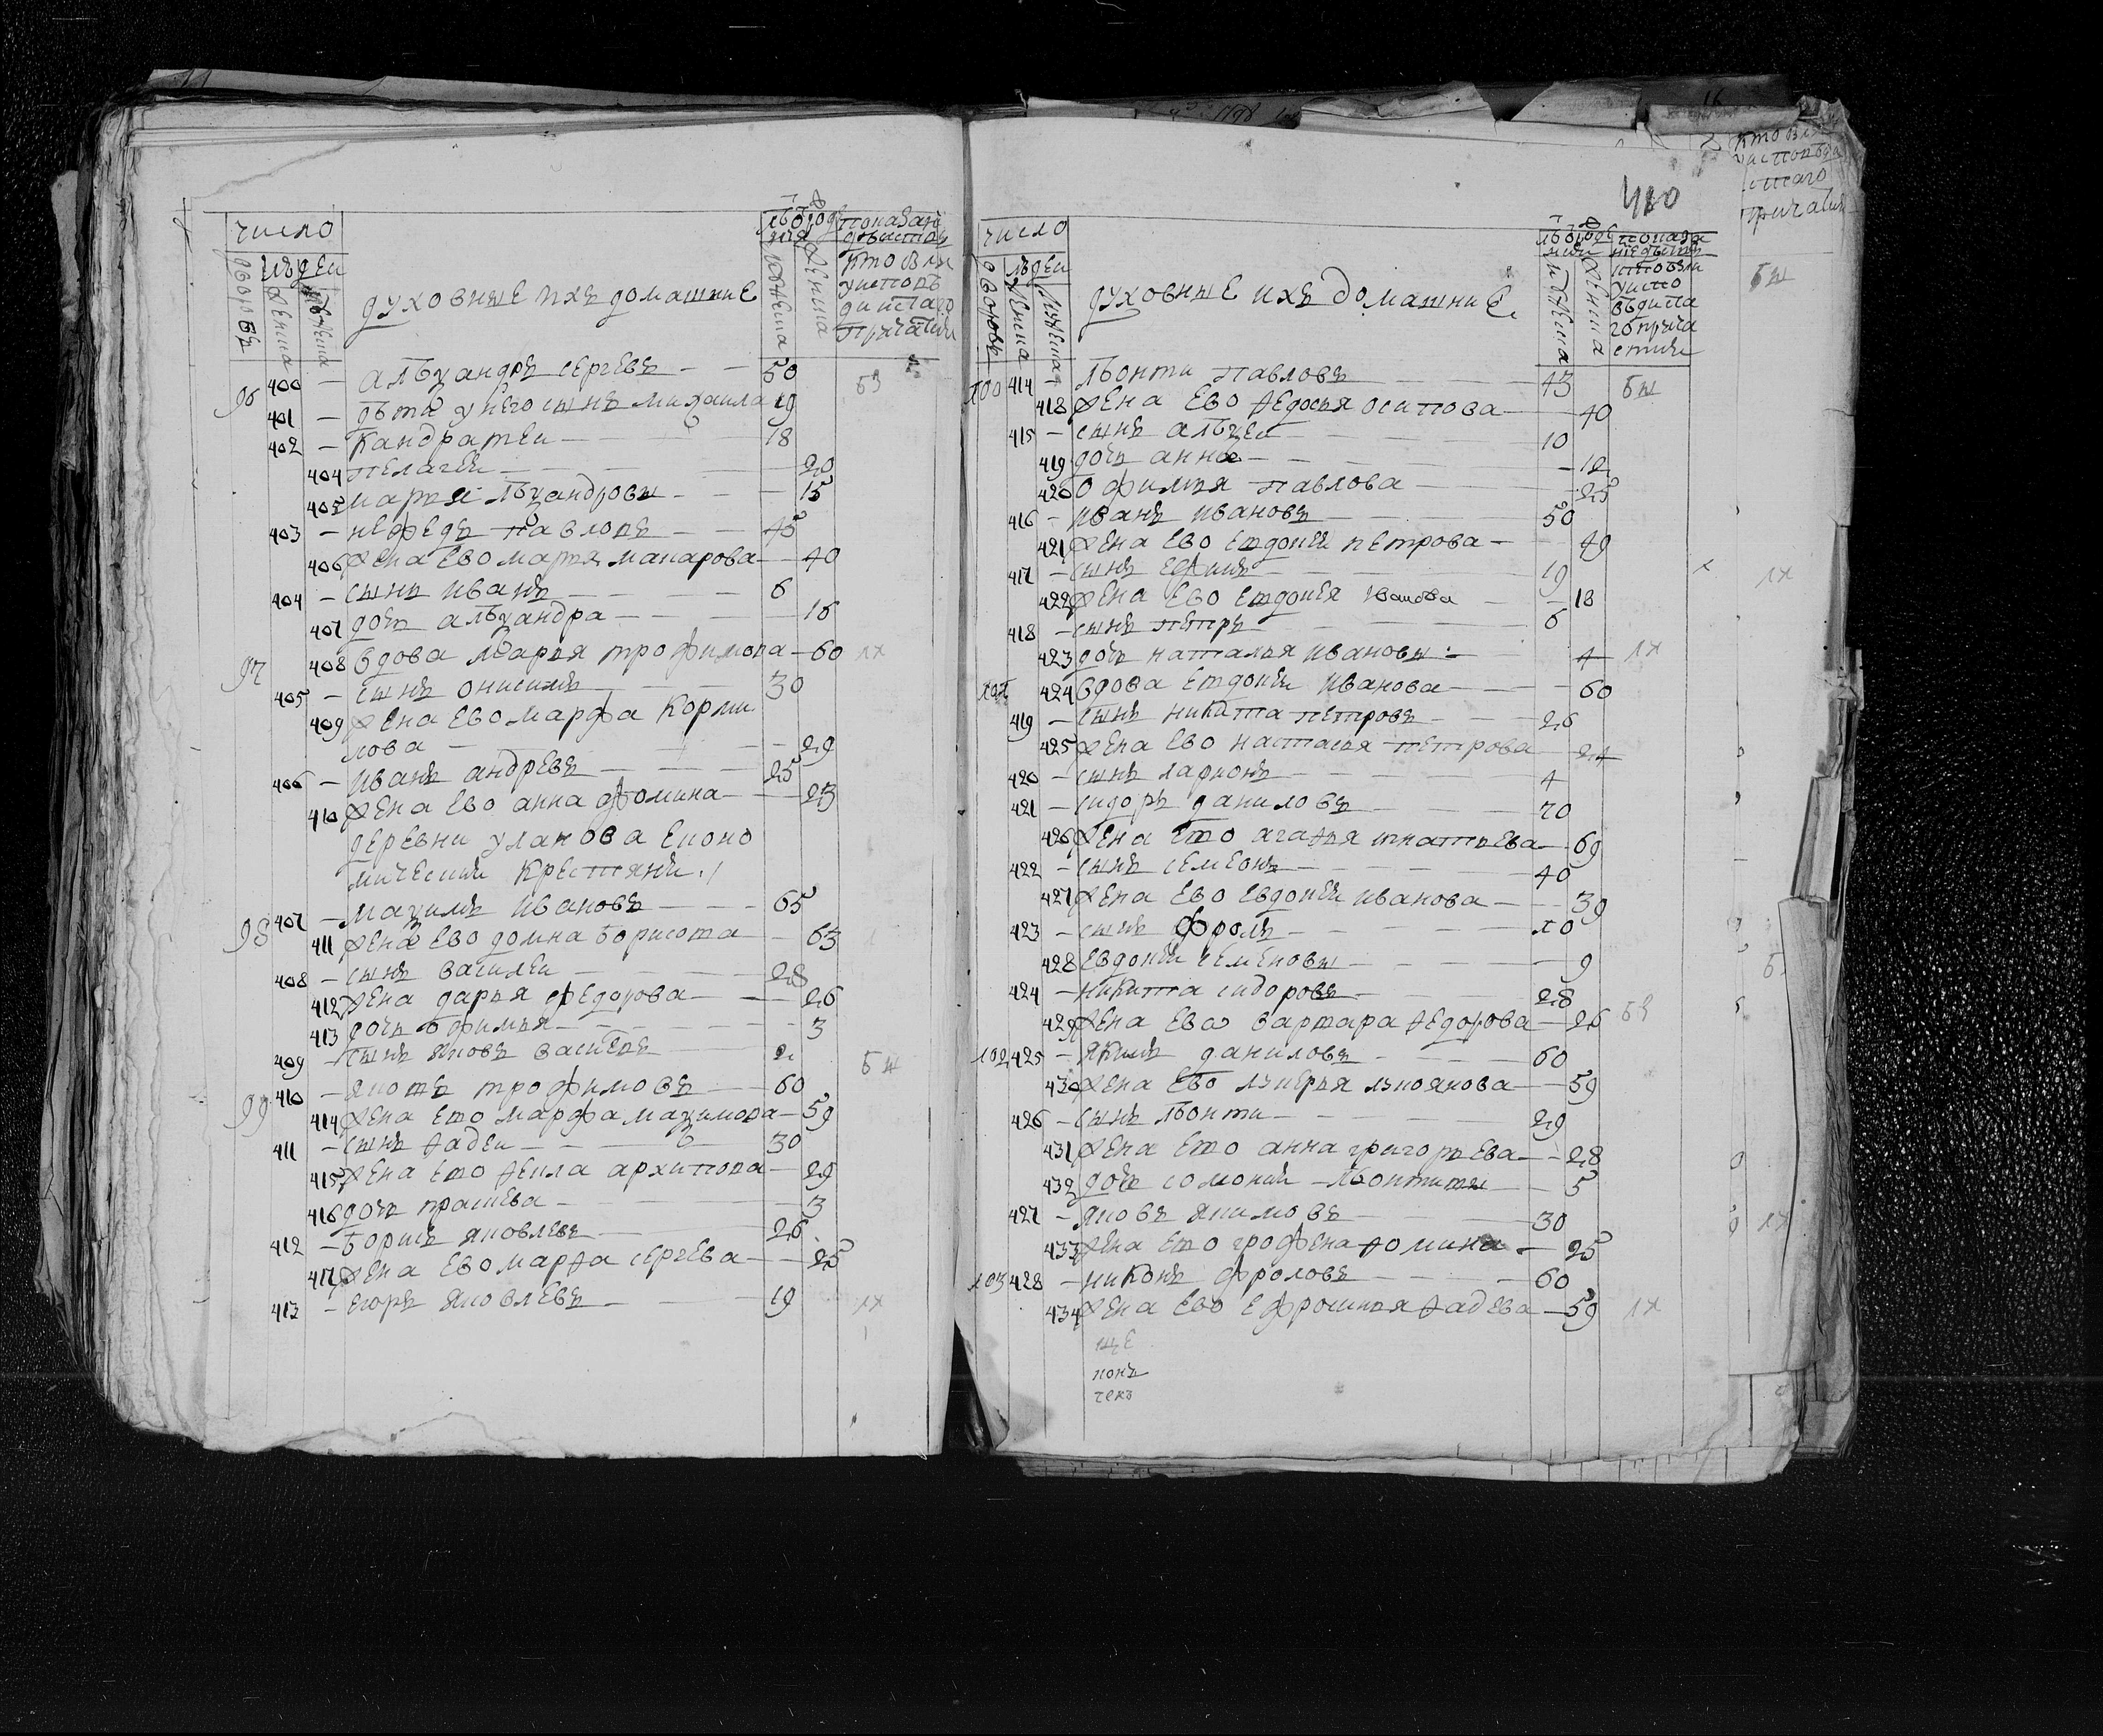 число
людеи
дворовъ
женска
мужеска
духовные ихъ домашние
лѣта
мужеска
женска
показан
кто были
у исповѣ
ди и стаго
причастия
96 400 — алѣѯандръ сергевъ — 50
401 — дѣти у него сынъ михаила 19
402 — кандратеи — 18
404 пелагеи — 20
405 марья алѣѯандровы — 15
403 — нефедъ павловъ — 45
406 жена ево марья макарова — 40
404 — сынъ иванъ — 6
407 дочь алѣѯандра — 16
97 408 вдова марья трофимова — 60
405 — сынъ онисимъ — 30
409 жена ево марфа корни
лова — 29
406 — иванъ андревъ — 25
410 жена ево анна фомина — 23
деревни уланова еконо
мически крестяни
98 407 — маѯимъ ивановъ — 65
411 жена ево домна борисова — 63
408 — сынъ василеи — 28
412 жена дарья федорова — 26
413 дочь ѣфимья — 3
409 — сынъ яковъ васильевъ 2
99 410 — яковъ трофимовъ — 60
414 жена ево марфа маѯимова — 59
411 — сынъ ѳадеи — 30
415 жена ево ѳекла архипова — 29
416 дочь прасковя — 3
412 — борисъ яковлевъ — 26
417 жена ево марѳа сергева — 25
413 — егоръ яковлевъ — 19
410
число
людеи
дворовъ
женска
мужеска
духовные ихъ домашние
мужеска
женска
кто был
у исповѣди
и стаго
причастия
100 414 — лѣонти павловъ — 43
418 жена ево ѳедосья осипова — 40
415 — сынъ алѣѯеи — 10
419 дочь анна — 12
420 офимья павлова — 25
416 — иванъ ивановъ — 50
421 жена ево евдокия петрова — 49
417 — сынъ ефимъ — 19
422 жена ево евдокия иванова — 18
418 — сынъ петръ — 6
423 дочь наталья ивановы — 4
101 424 вдова евдокия иванова — 60
419 — сынъ никита петровъ — 26
425 жена ево настасья петрова 24
420 — сынъ ларионъ — 4
421 — сидоръ даниловъ — 70
426 жена ево агаѳья игнатьева — 69
422 — сынъ семеонъ — 40
427 жена ево евдокия иванова — 39
423 — сынъ фролъ — 10
428 евдокия семеновы — 9
424 — никита сидоровъ — 28
429 жена ево варвара ѳедорова — 26
102 425 — якимъ даниловъ — 60
430 жена ево лукерья лукоянова — 59
426 — сынъ лѣонти — 29
431 жена ево анна григорьева — 28
432 дочь соломония лѣонтивы — 5
427 — яковъ якимовъ — 30
433 жена ево грофена ѳомина — 25
103 428 — никонъ фроловъ — 60
434 жена ево ефросинья ѳадева — 59